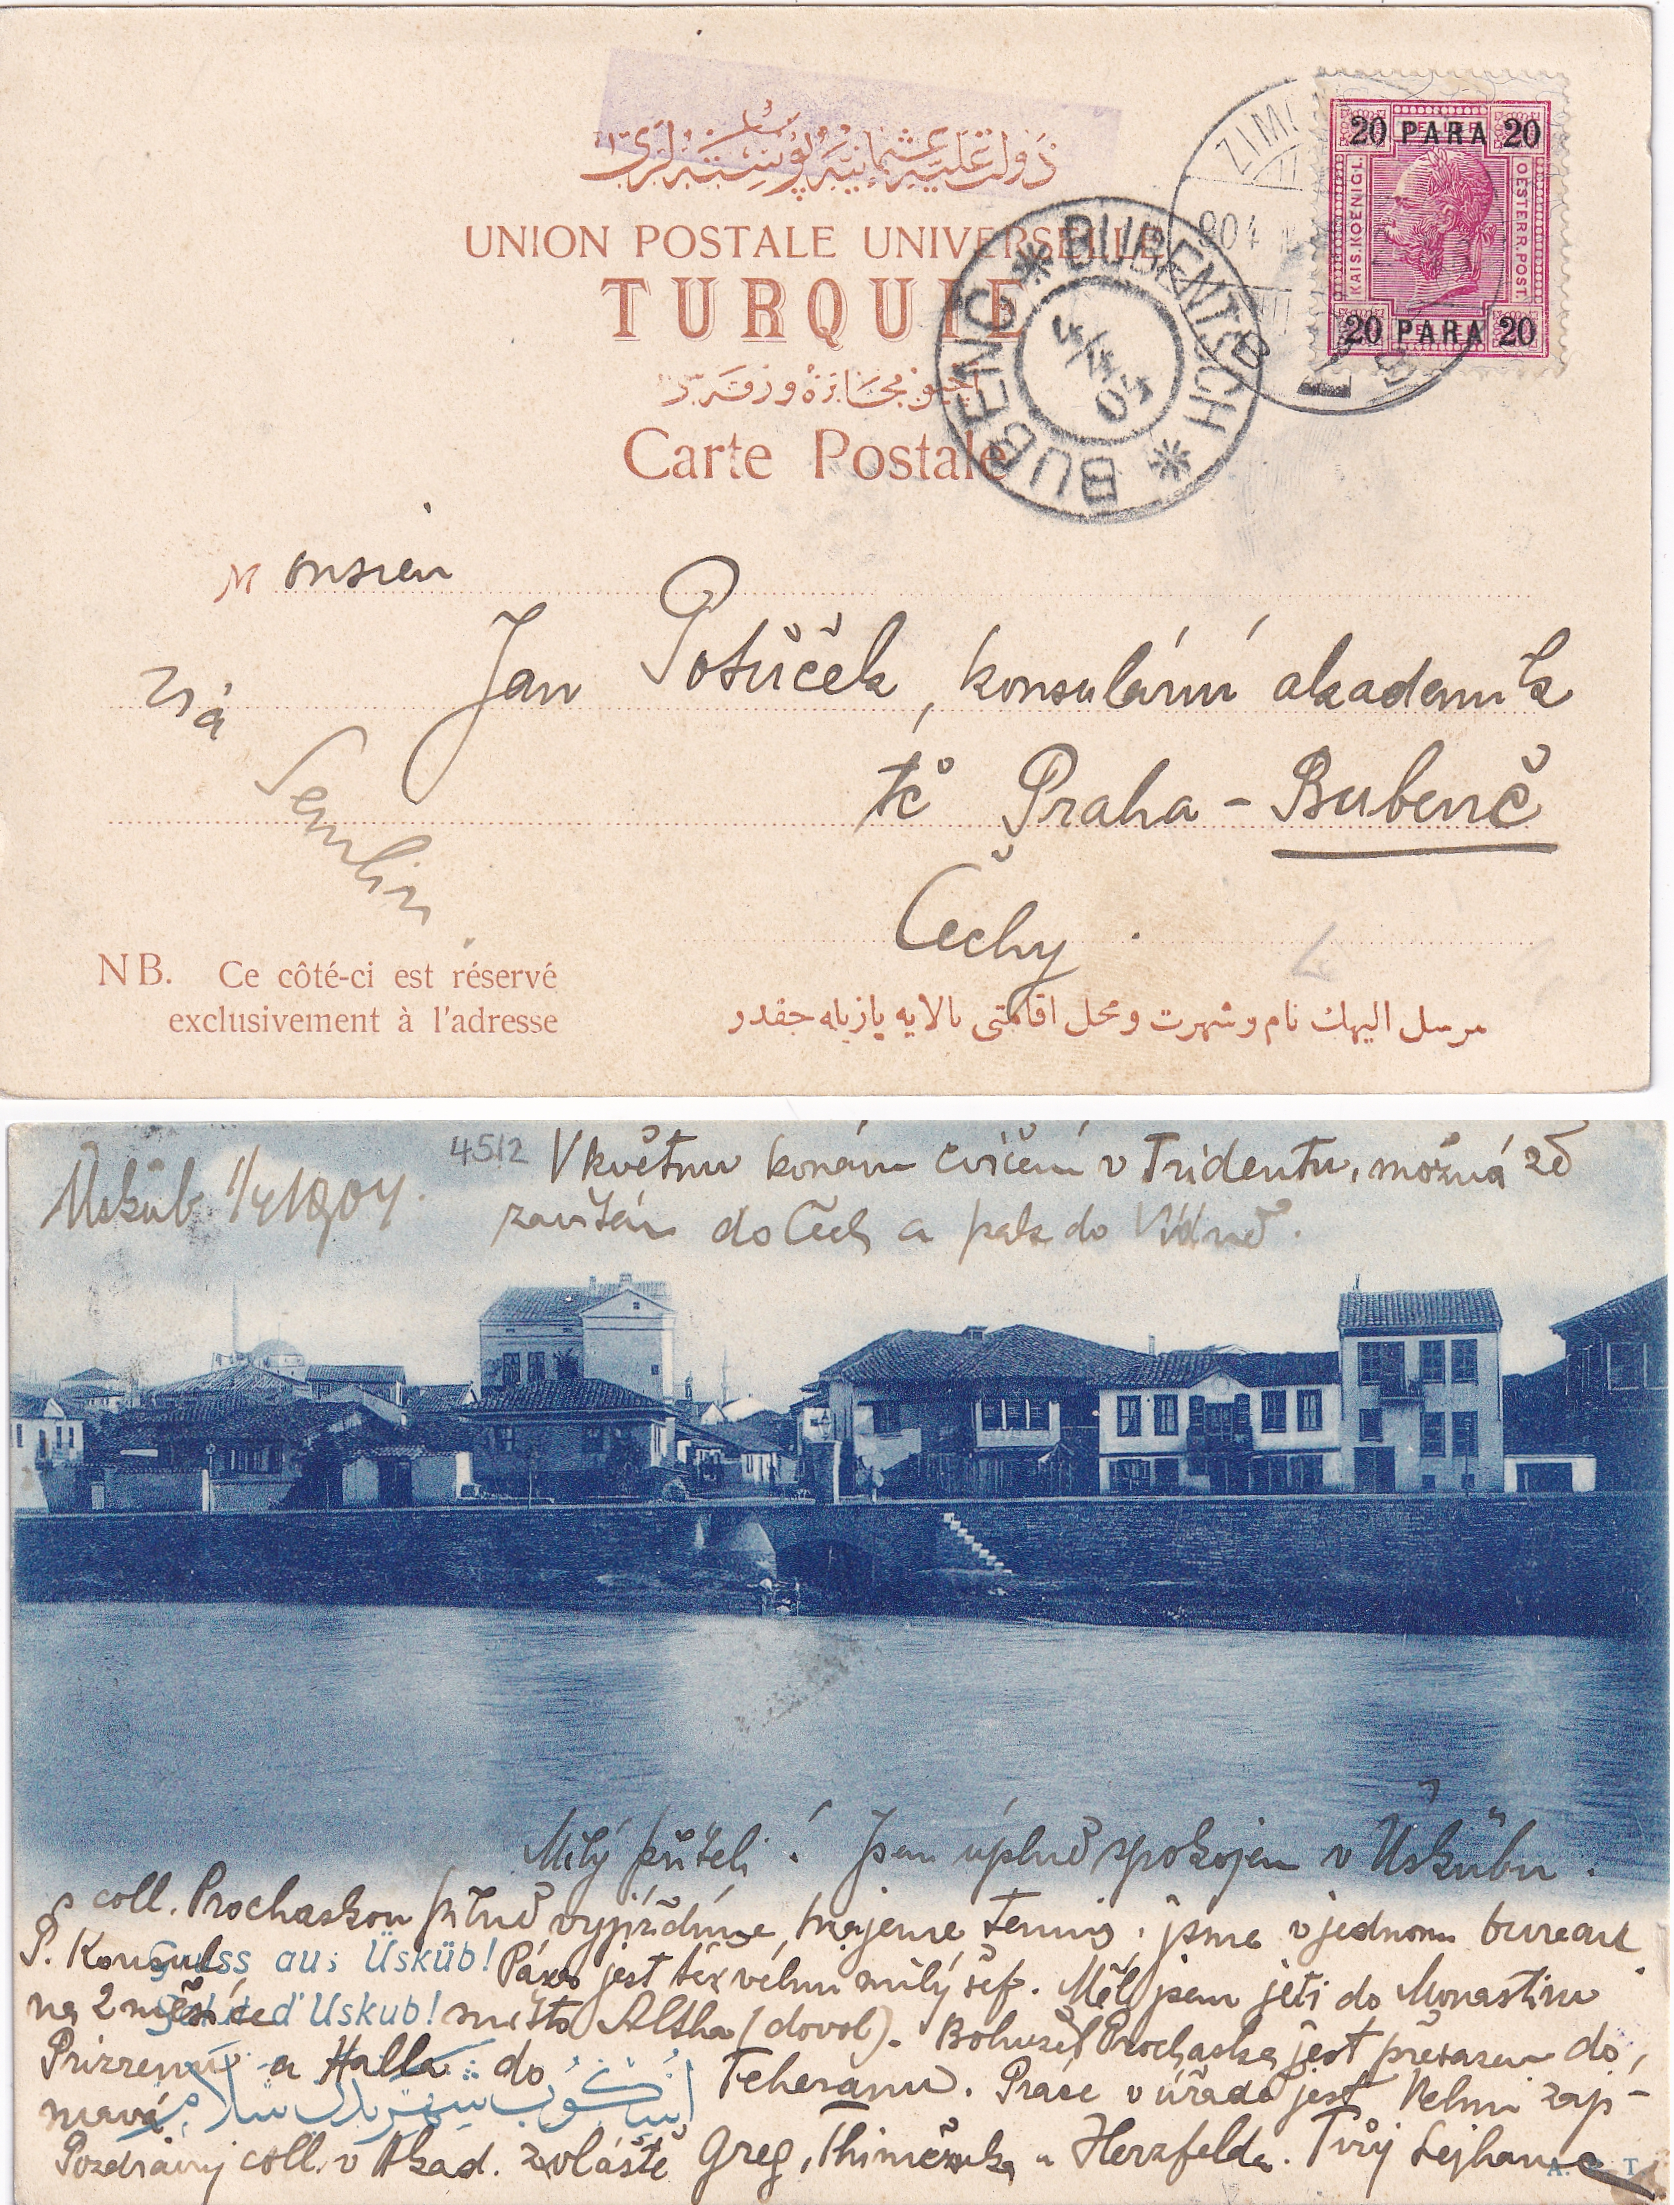 دولت علیه عثمانیه پوسته لری
UNION POSTALE UNIVERSELLE
TURQUIE
Carte Postale
ZIM
904
BUBENTSCH * BUBENČ *
4/4 04
20 PARA 20
KAIS. KOENIGL.
OESTERR. POST.
20 PARA 20
Monsieu
Jan Potůček, konsulární akademik
tč Praha - Bubenč
Čechy.
Viá
Semlin
NB. Ce côté-ci est réservé
exclusivement à l'adresse
مرسل الیهك نام و شهرت و محل اقامتی بالایه یازیله جقدر
4512
Üsküb 1/4 1904.
V květnu konám cvičení v Tridentu, možná že
zavítám do Čech a pak do Vídně.
Milý příteli! Jsem úplně spokojen v Üskübu.
s coll. Prochaskou pilně vyjíždíme, hrajeme tennis, jsme v jednom bureau
P. Konsul Pára jest též velmi milý šéf. Měl jsem jeti do Monastiru
na 2 měsíce místo (dovol). Bohužel Prochaska jest přeražen do
Prizrenu a Halla do Teheranu. Práce v úřadě jest velmi zají-
mavá
Pozdravuj coll. v Akad. zvláště Greg, a Herzfelda. Tvůj Lejhanec
Gruss aus Üsküb!
d'Uskub!
اسكوب شهرندن سلام
A. T.